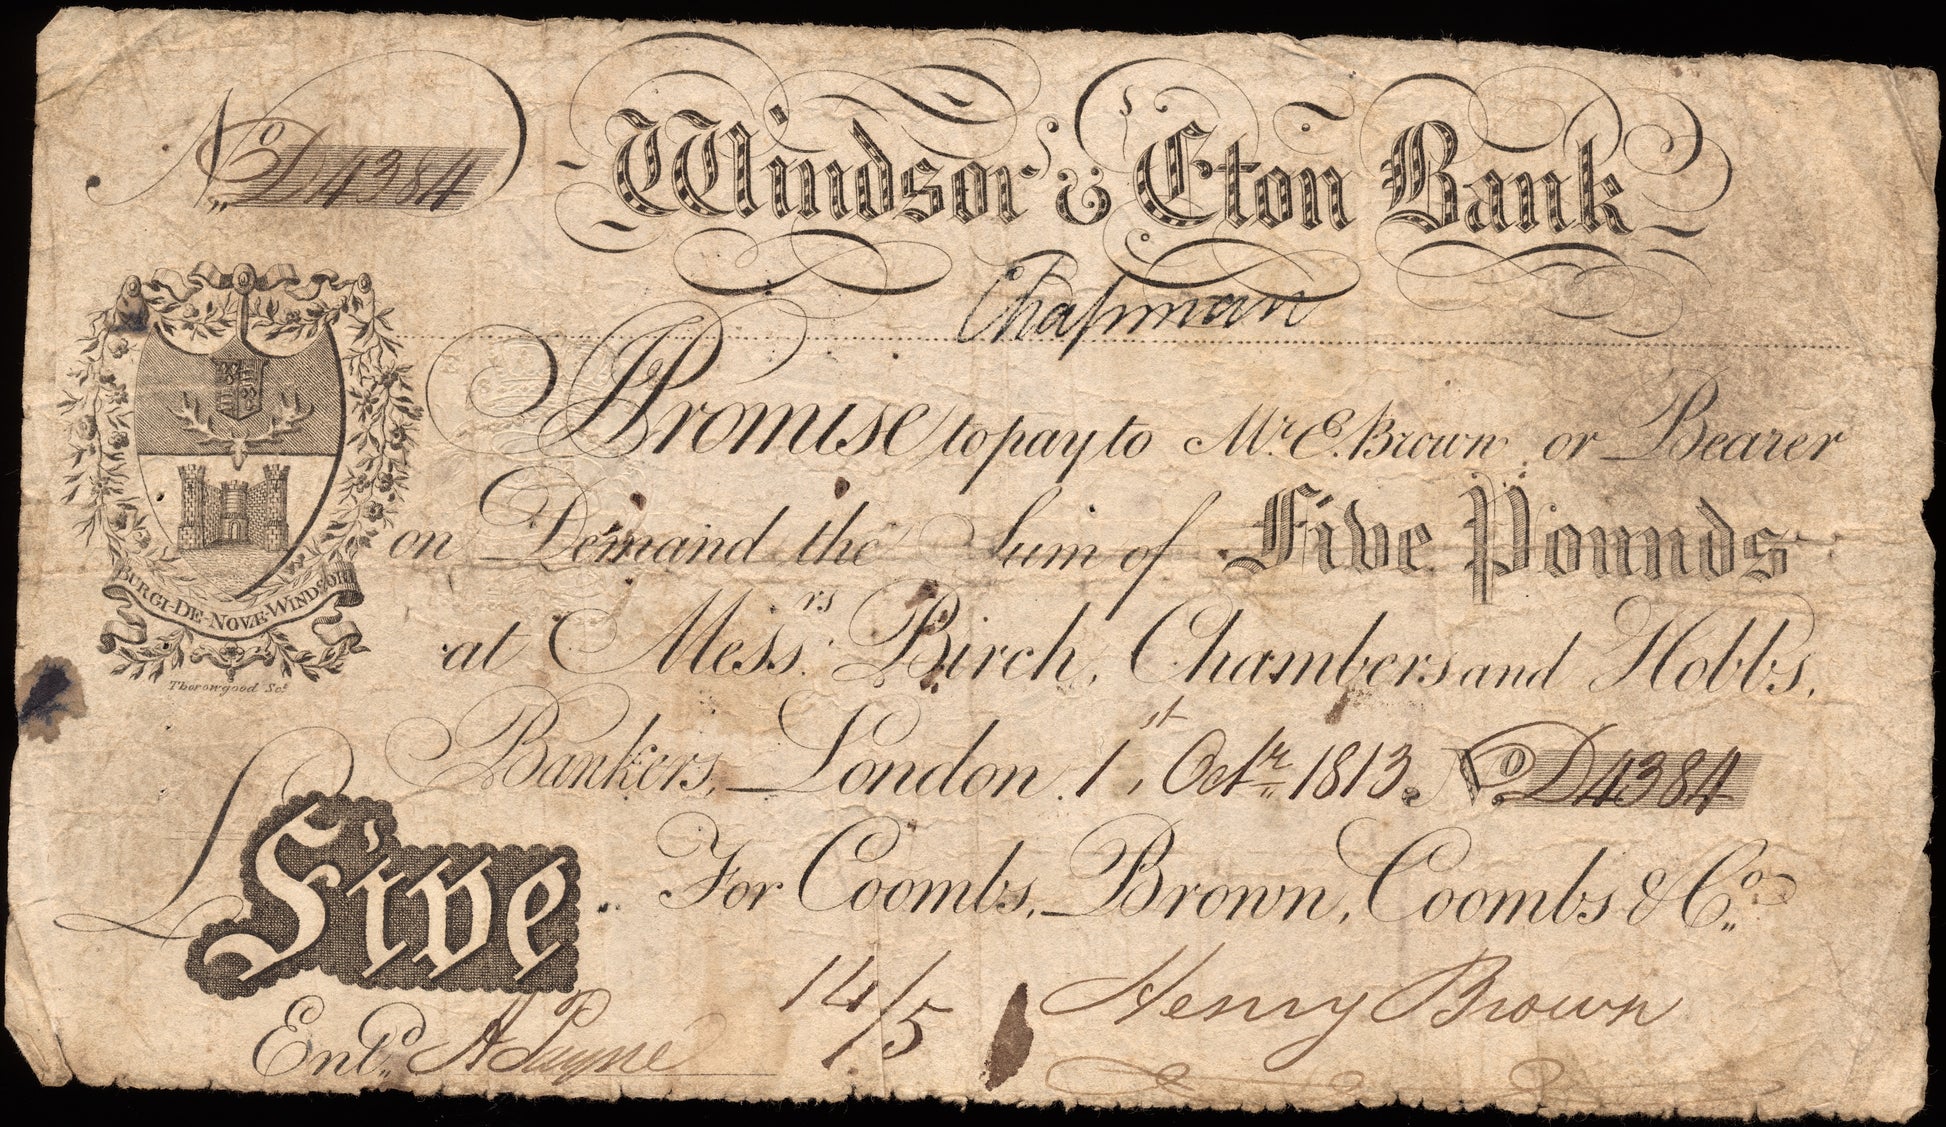 No. D4384
Windsor & Eton Bank
Chapman
I Promise to pay to Mr. E. Brown or Bearer
on Demand the Sum of Five Pounds
at Messrs. Birch, Chambers and Hobbs,
Bankers, London 1st Octr. 1813. No. D4384
BURGI-DE-NOVÆ-WINDSOR
Thorowgood Sct.
£ Five
For Coombs, Brown, Coombs & Co.
14/5 Henry Brown
Entd.